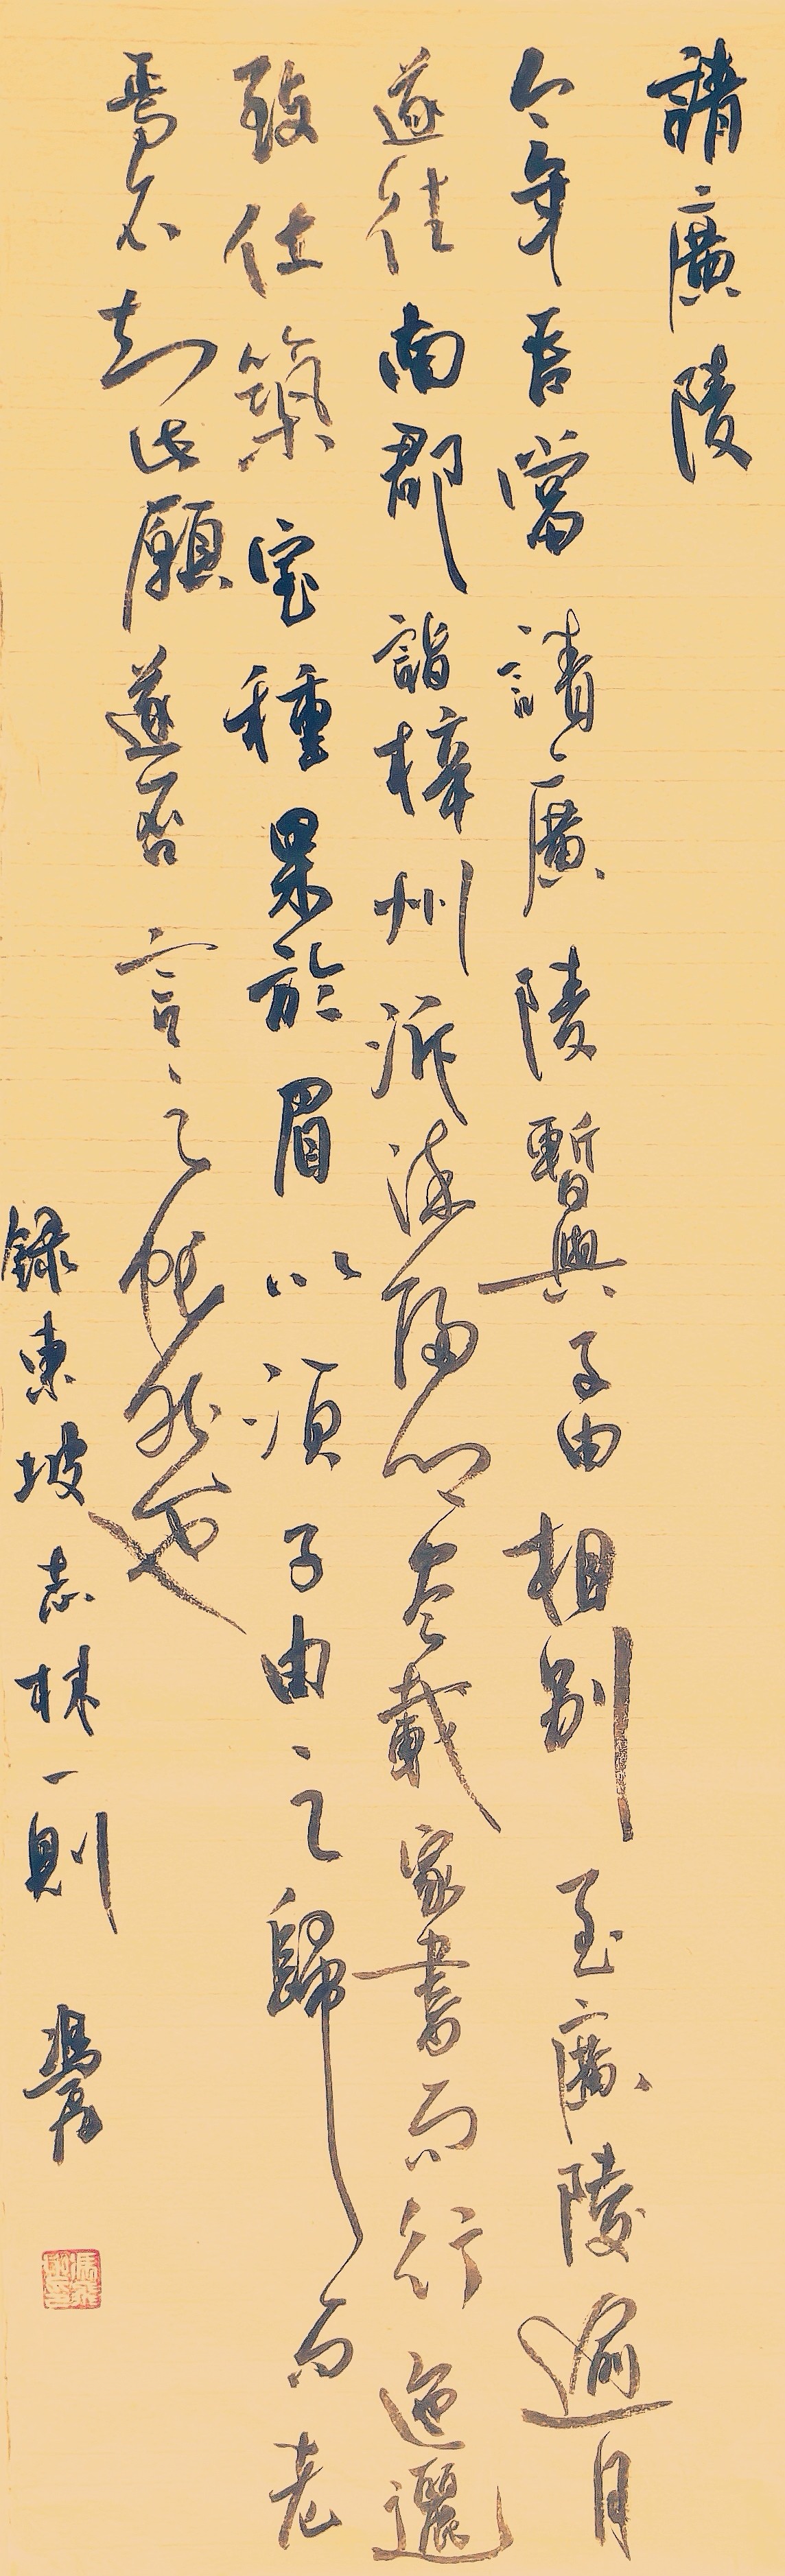 請廣陵
今年吾當請廣陵暫與子由相別至廣陵逾月
遂往南郡詣梓州泝流歸鄉盡載家書而行迤邐
致仕築室種果於眉以須子由之歸而老
焉不知此願遂否言之悵然也
録東坡志林一則